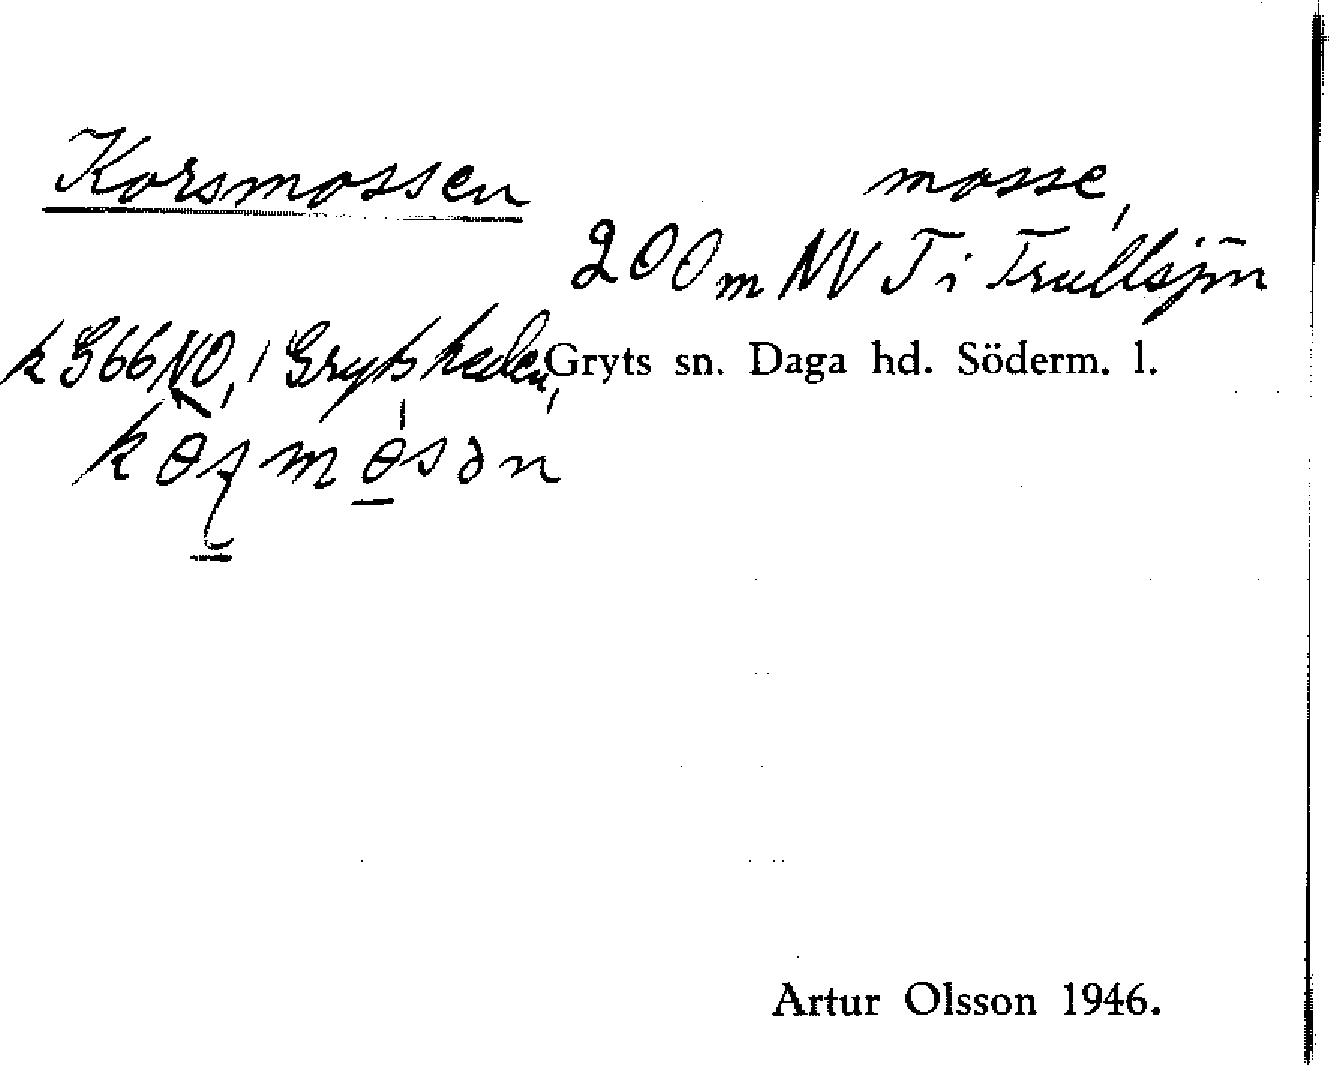 Korsmossen
mosse,
200 m NV T i Trullsjön
k G66 NO,
Gryts sn. Daga hd. Söderm. l.
Artur Olsson 1946.